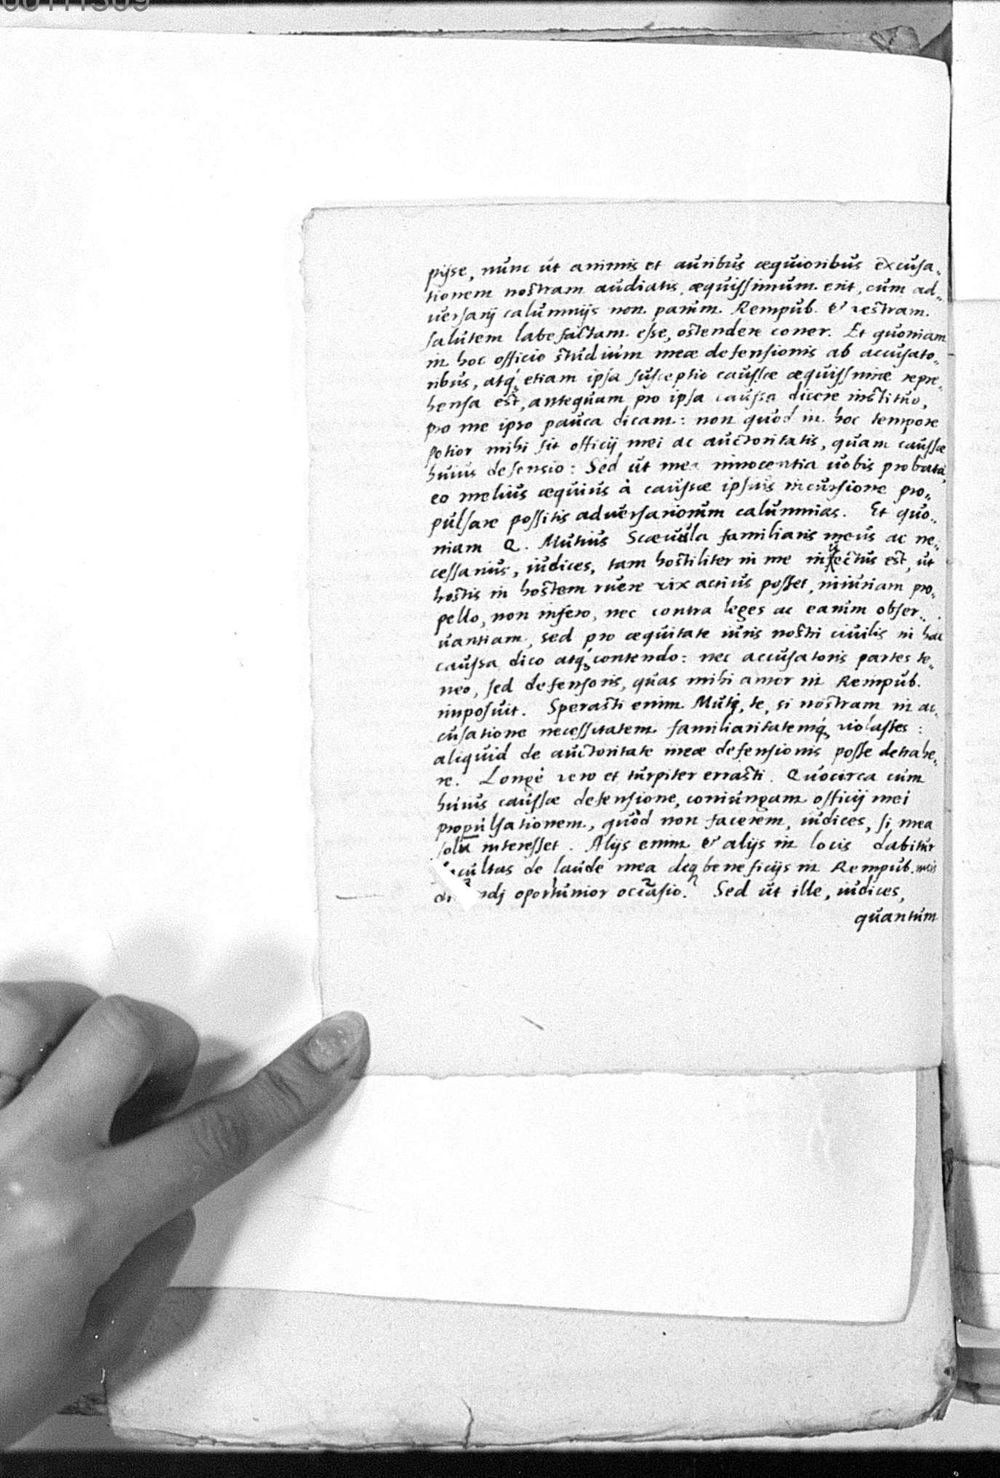 pijse, nunc ut animis et auribus æquioribus excusa-
tionem nostram audiatis, æquissimum erit, cum ad-
versarij calumnijs non parum Rempub. & vestram
salutem labefactam esse, ostendere coner. Et quoniam
in hoc officio studium meæ defensionis ab accusato-
ribus, atq; etiam ipsa susceptio caussæ æquissimæ repre-
hensa est, antequam pro ipsa caussa dicere instituo,
pro me ipso pauca dicam: non quòd in hoc tempore
potior mihi sit officij mei ac auctoritatis, quam caussæ
huius defensio: Sed ut mea innocentia uobis probata,
eo melius æquius à caussæ ipsius incursione pro-
pulsare possitis adversariorum calumnias. Et quo-
niam Q. Mutius Scæuola familiaris meus ac ne-
cessarius, iudices, tam hostiliter in me inuectus est, ut
hostis in hostem ruere vix acrius posset, iniuriam pro-
pello, non infero, nec contra leges ac earum obser-
uantiam, sed pro æquitate iuris nostri ciuilis in hac
caussa dico atq; contendo: nec accusatoris partes te-
neo, sed defensoris, quas mihi amor in Rempub.
imposuit. Sperasti enim Muti, te, si nostram in ac-
cusatione necessitatem familiaritatemq; violasses:
aliquid de auctoritate meæ defensionis posse detrahe-
re. Longè vero et turpiter errasti. Quocirca cum
huius caussæ defensione, coniungam officij mei
propulsationem, quòd non facerem, iudices, si mea
solũ interesset. Alijs enim & alijs in locis dabitur
facultas de laude mea deq; beneficijs in Rempub. meis
dicendj oportunior occasio. Sed ut ille, iudices,
quantum